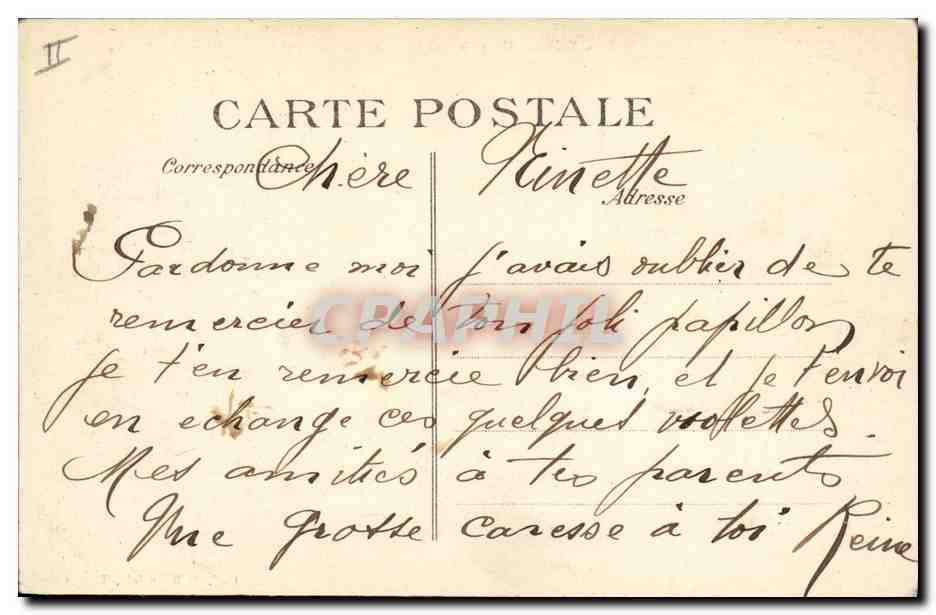 II
CARTE POSTALE
Correspondance
Adresse
Chère Ninette
Pardonne moi j'avais oublier de te
remercier de ton joli papillon
je t'en remercie bien, et je t'envoi
en echange ces quelques violettes.
Mes amitiés à tes parents
Une grosse caresse à toi Reine
CPAPHIL